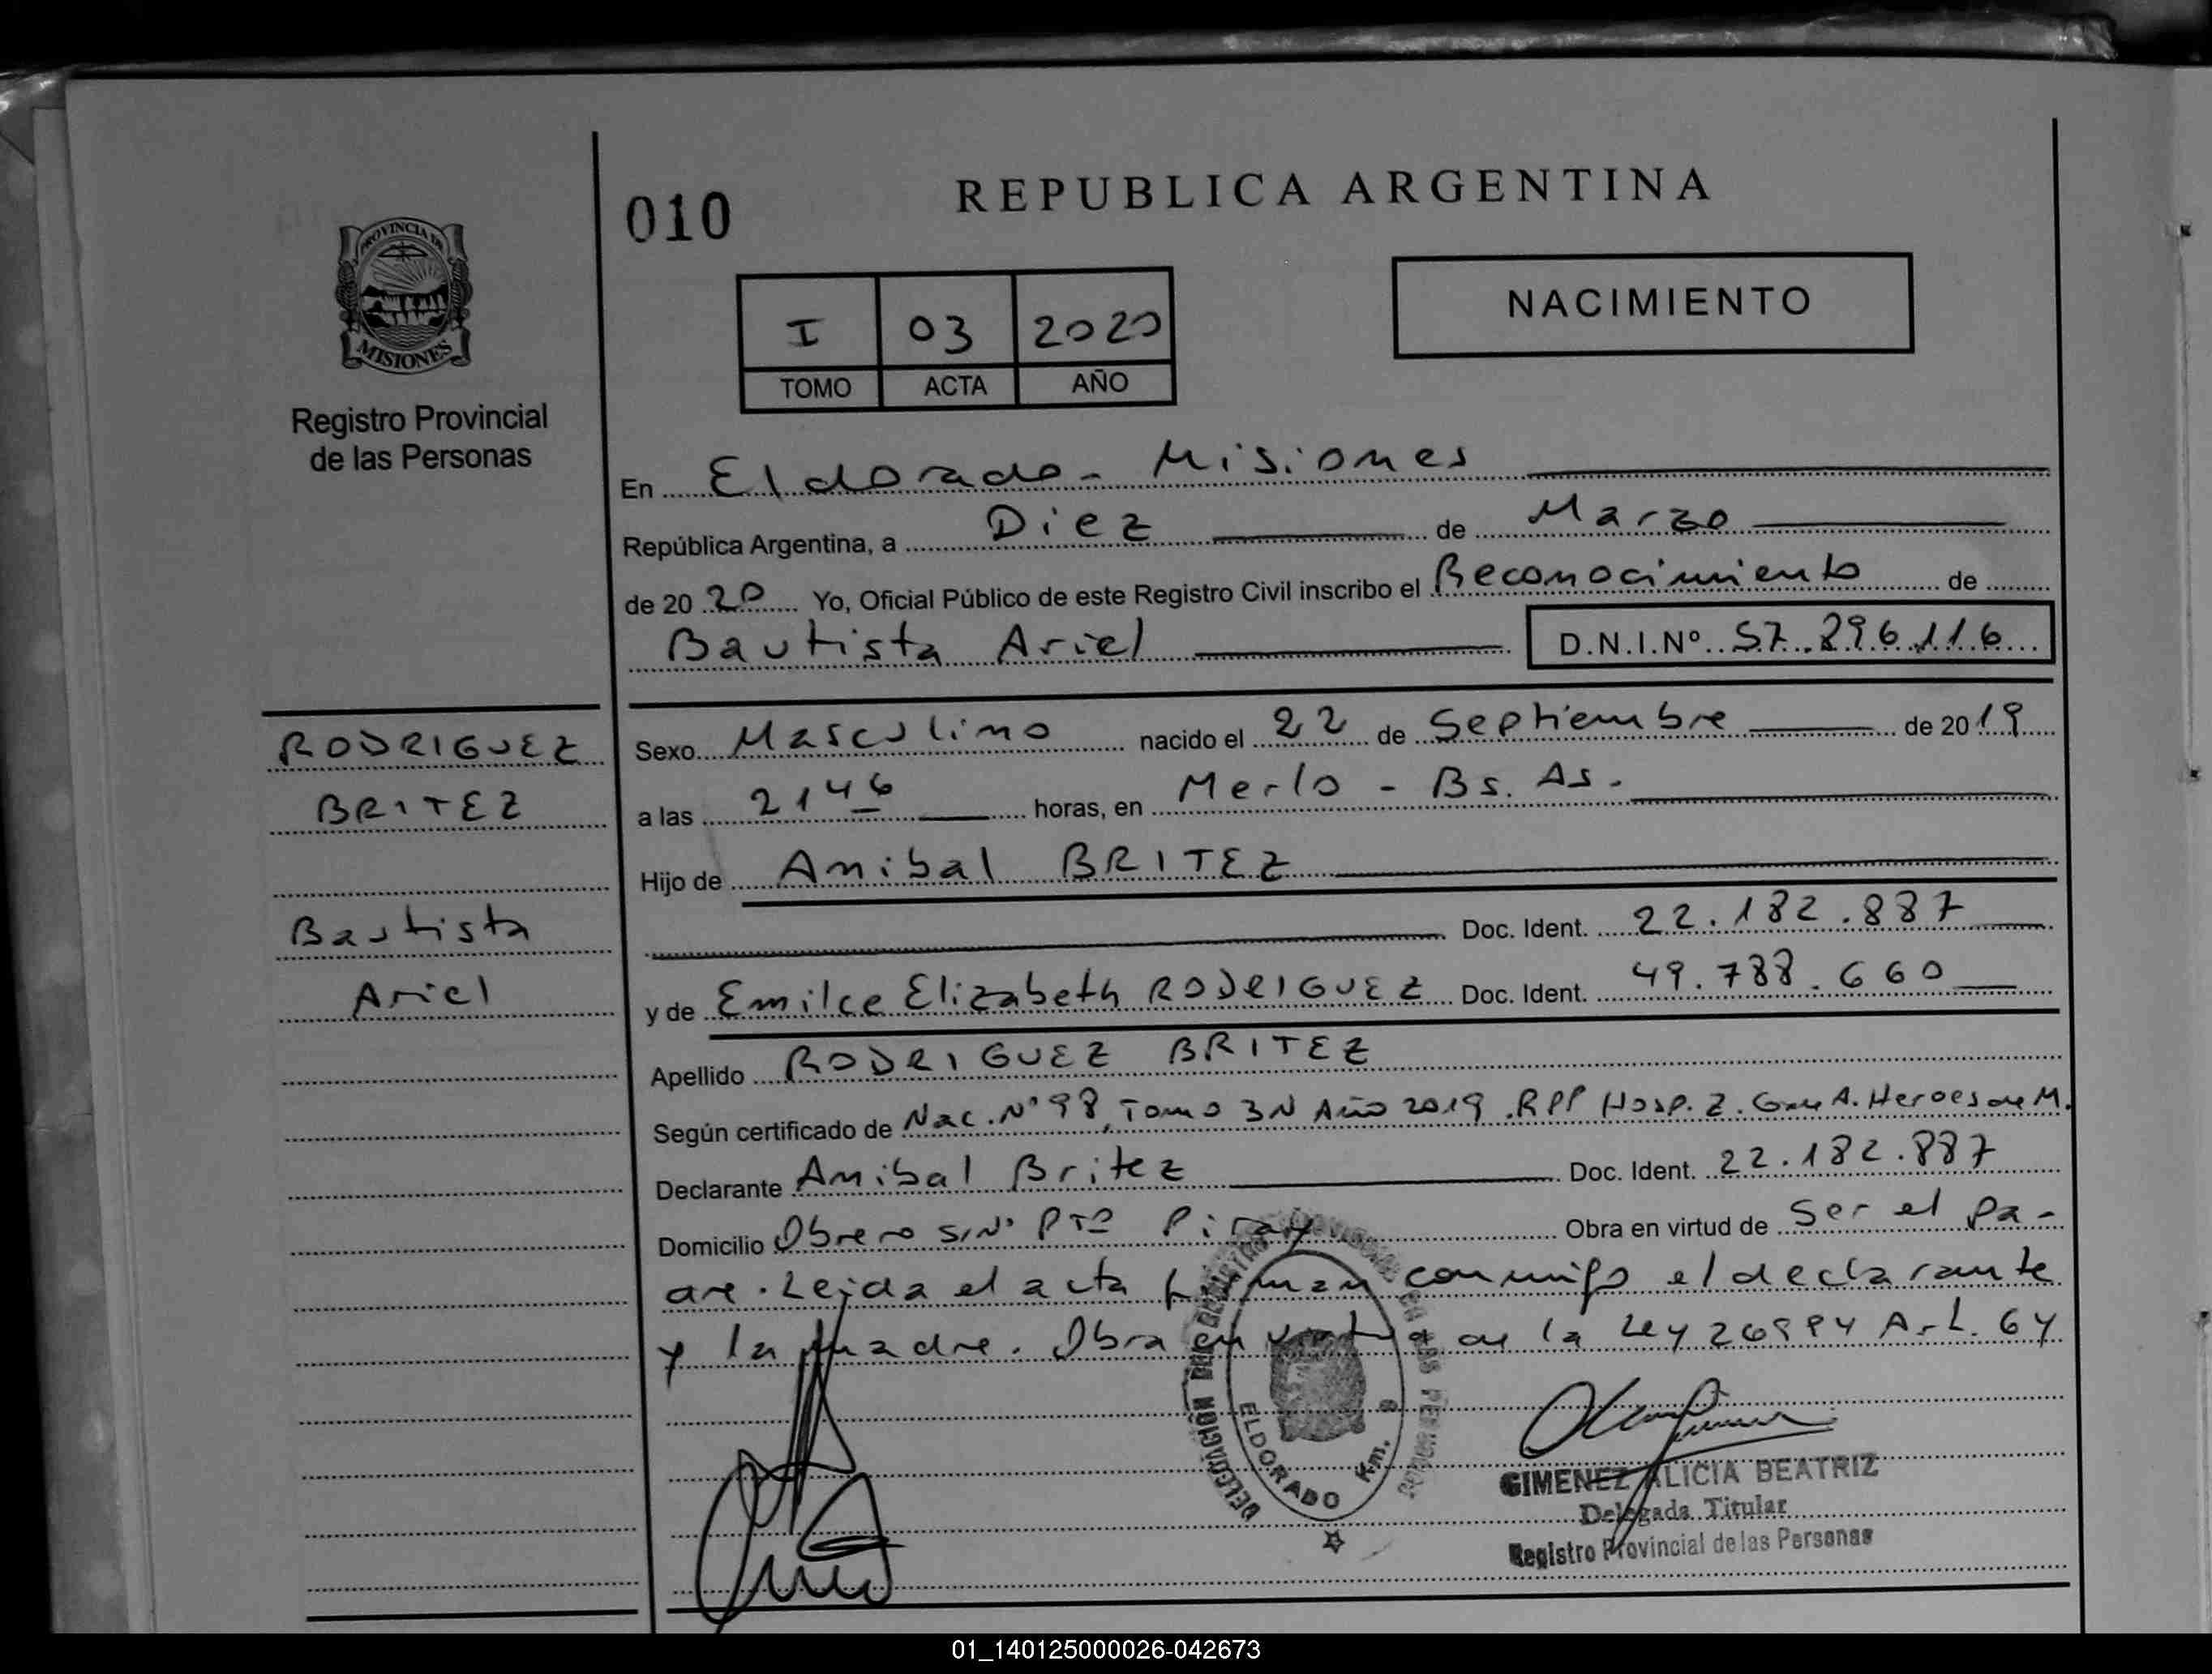 010
REPUBLICA ARGENTINA
PROVINCIA DE
MISIONES
Registro Provincial
de las Personas
I 03 2020
TOMO ACTA AÑO
NACIMIENTO
En Eldorado - Misiones
República Argentina, a Diez de Marzo
de 20 20 Yo, Oficial Público de este Registro Civil inscribo el Reconocimiento de
Bautista Ariel D.N.I.Nº 57.896.116
RODRIGUEZ
BRITEZ
Bautista
Ariel
Sexo Masculino nacido el 22 de Septiembre de 2019
a las 2146 horas, en Merlo - Bs. As.
Hijo de Anibal BRITEZ
Doc. Ident. 22.182.887
y de Emilce Elizabeth RODRIGUEZ Doc. Ident. 49.788.660
Apellido RODRIGUEZ BRITEZ
Según certificado de Nac. Nº 98, Tomo 3N Año 2019 RPP Hosp. Z. A. Heroes de M.
Declarante Anibal Britez Doc. Ident. 22.182.887
Domicilio Obrero S/Nº Pto Piray Obra en virtud de Ser el pa-
dre. Leida el acta firman conmigo el declarante
y la madre. Obra en virtud de la Ley 26994 Art. 64
ELDORADO Km. 
GIMENEZ ALICIA BEATRIZ
Delegada Titular
Registro Provincial de las Personas
01_140125000026-042673